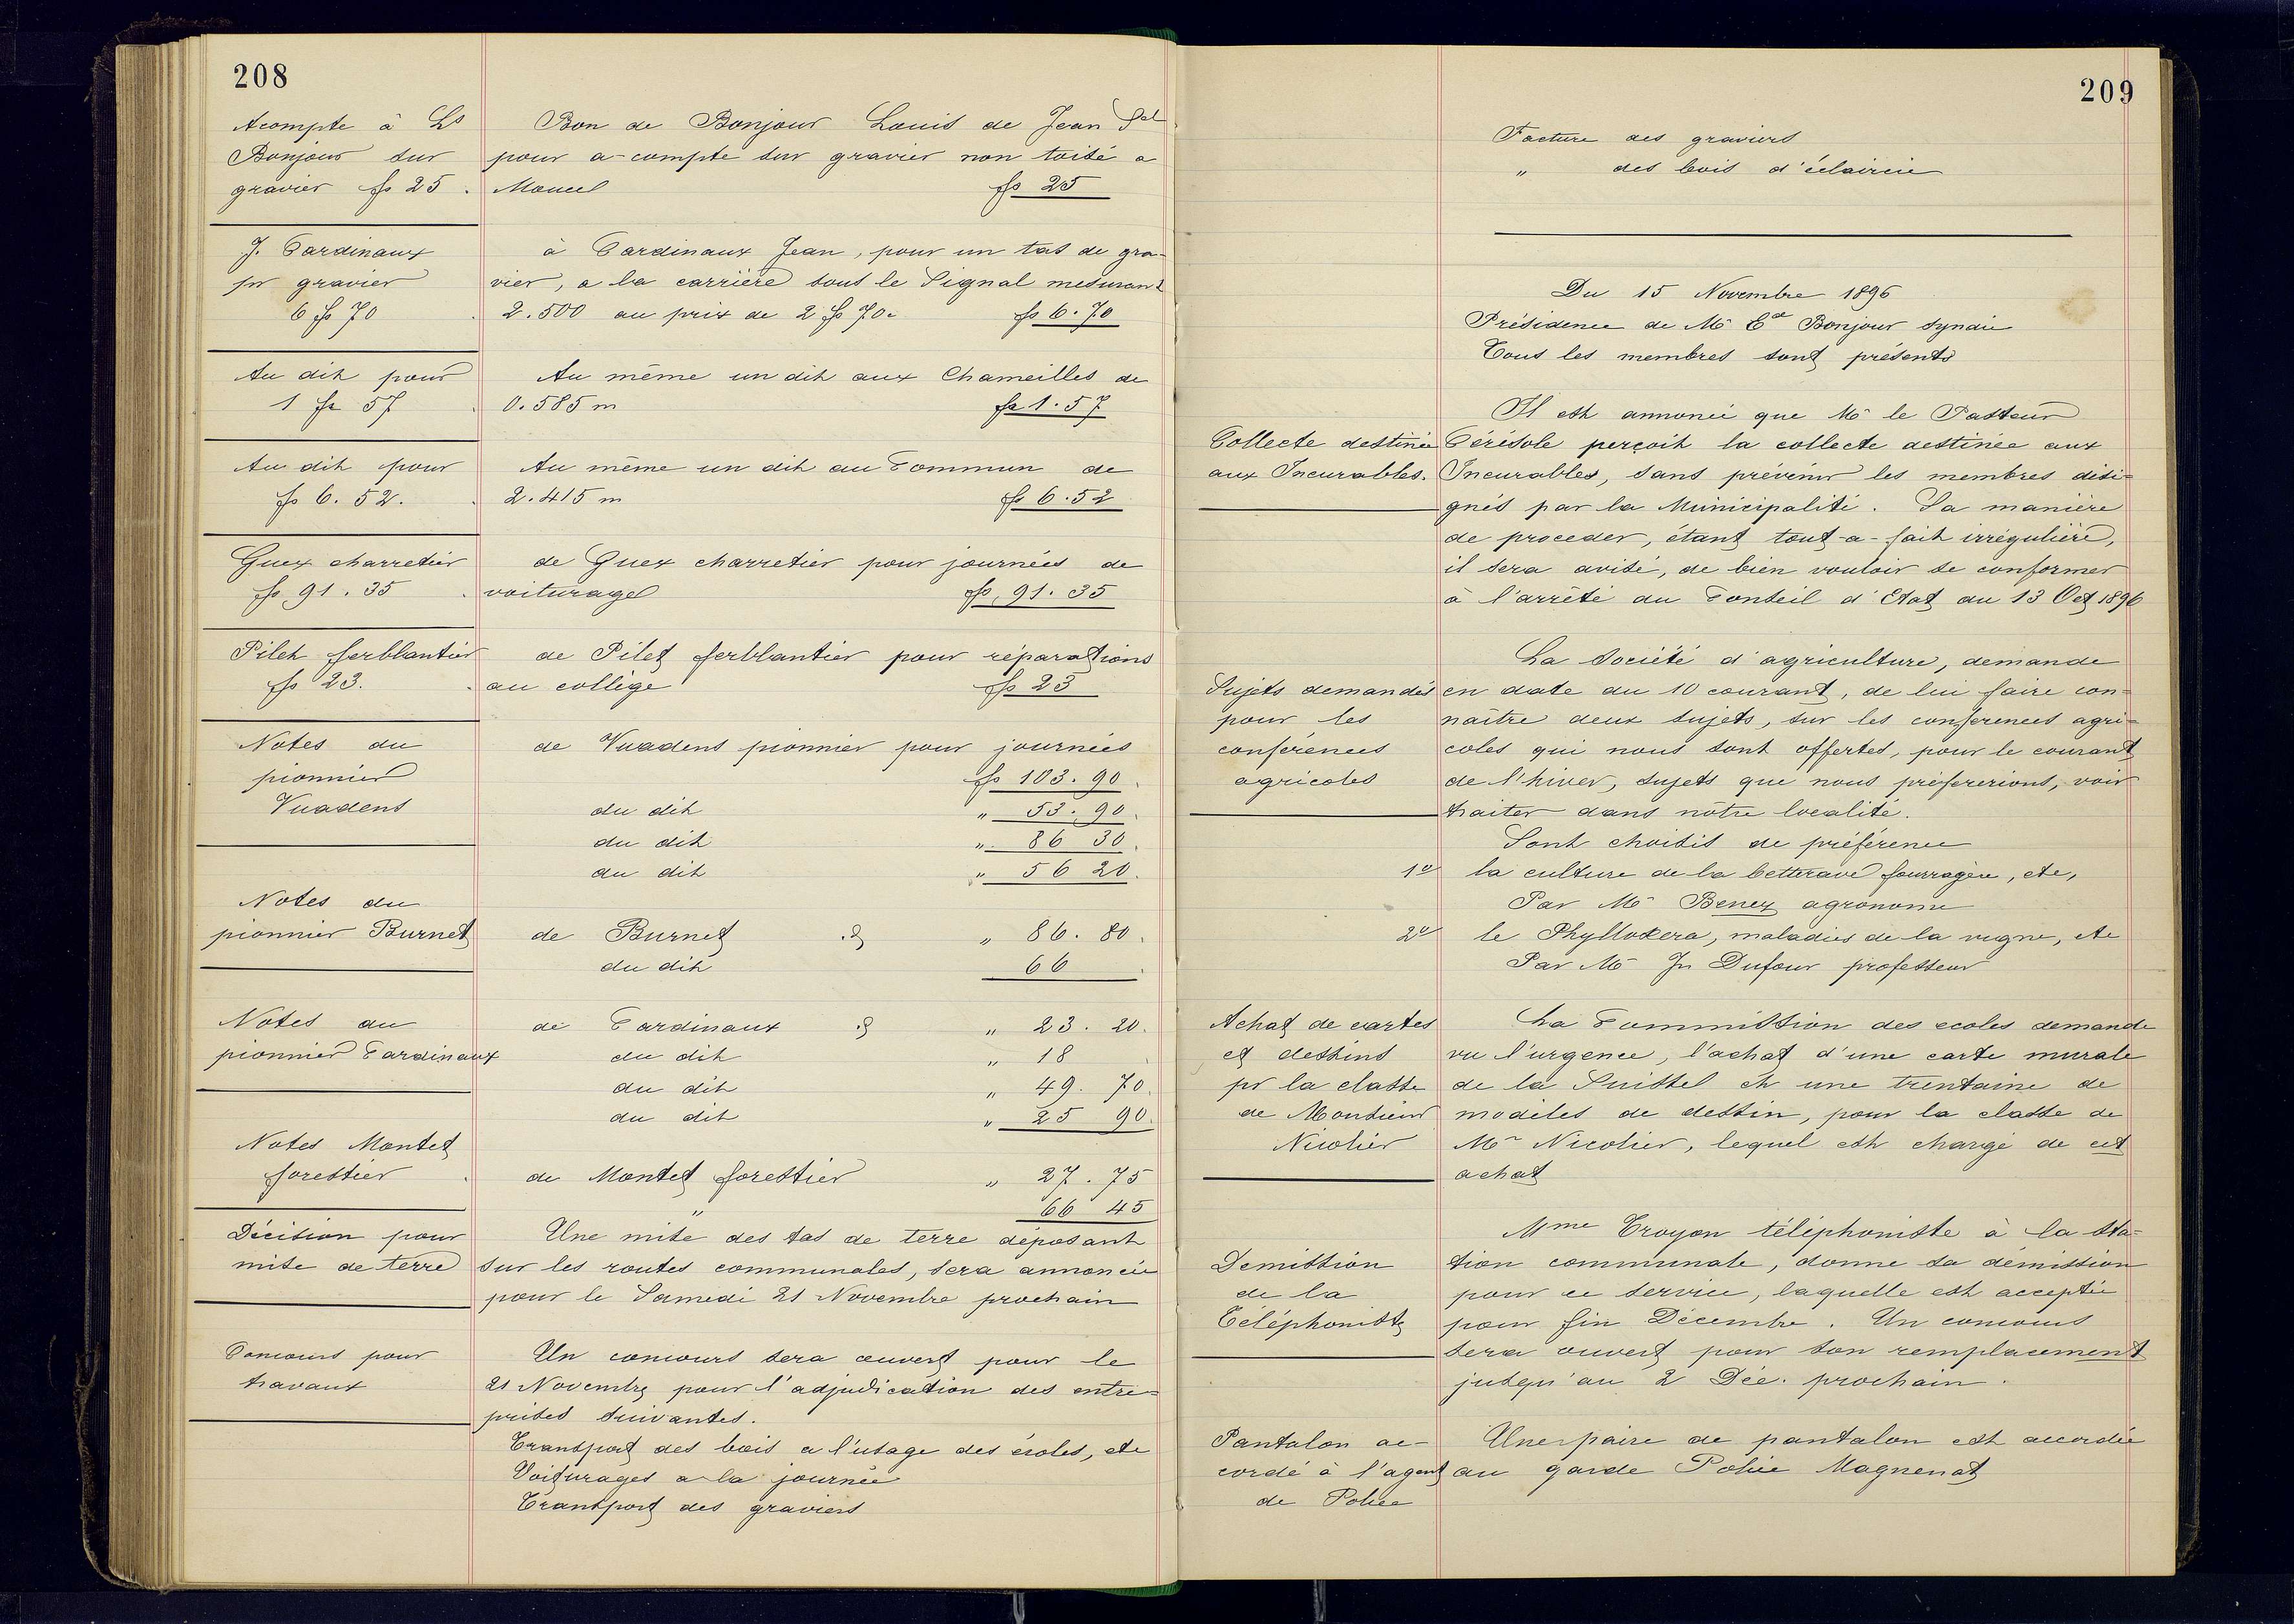 208
Acompte à Ls
Bonjour sur
gravier fs 25.
Bon de Bonjour Louis de Jean Sel
pour a-compte sur gravier non toisé a
Moucel fs 25
J. Cardinaux
pr gravier
6 fs 70
à Cardinaux Jean, pour un tas de gra-
vier, a la carrière sous le Signal mesurant
2.500 au prix de 2 fs 70. fs 6.70
Au dit pour
1 fr 57
Au même un dit aux Chameilles de
0.585 m fr 1.57
Au dit pour
fs 6.52.
Au même un dit au Commun de
2.415 m fs 6.52
Guex charretier
fs 91.35
de Guex charretier pour journées de
voiturage fs. 91.35
Pilet ferblantier
fs 23.
de Pilet ferblantier pour réparations
au collège fs 23
Notes du
pionnier
Vuadens
de Vuadens pionnier pour journées
fs 103.90
du dit " 53.90
du dit " 86 30
du dit " 56 20
Notes du
pionnier Burnet
de Burnet " 86.80
du dit 66
Notes du
pionnier Cardinaux
de Cardinaux " 23.20
du dit " 18
du dit " 49.70
du dit " 25 90
Notes Montet
forestier
de Montet forestier " 27.75
" 66 45
Décision pour
mise de terre
Une mise des tas de terre déposant
sur les routes communales, sera annoncée
pour le Samedi 21 Novembre prochain
Concours pour
travaux
Un concours sera ouvert pour le
21 Novembre pour l'adjudication des entre-
prises suivantes.
Transport des bois a l'usage des écoles, etc
Voiturages a la journée
Transport des graviers
209
Facture des graviers
" des bois d'éclaircie
Du 15 Novembre 1896
Présidence de Mr Cel Bonjour syndic
Tous les membres sont présents
Collecte destinée
aux Incurables.
Il est annoncé que Mr le Pasteur
Cérésole perçoit la collecte destinée aux
Incurables, sans prévenir les membres dési-
gnés par la Municipalité. Sa manière
de proceder, étant tout-a-fait irrégulière,
il sera avisé, de bien vouloir se conformer
à l'arrêté du Conseil d'Etat du 13 Oct 1896
Sujets demandés
pour les
conférences
agricoles
La Société d'agriculture, demande
en date du 10 courant, de lui faire con-
naître deux sujets, sur les conférences agri-
coles qui nous sont offertes, pour le courant
de l'hiver, sujets que nous préfererions, voir
traiter dans nôtre localité.
Sont choisis de préférence
1o la culture de la betterave fourragère, etc,
Par Mr Benex agronome
2o le Phylloxera, maladies de la vigne, etc
Par Mr Jn Dufour professeur
Achat de cartes
et dessins
pr la classe
de Monsieur
Nicolier
La Commission des ecoles demande
vu l'urgence, l'achat d'une carte murale
de la Suisse et une trentaine de
modèles de dessin, pour la classe de
Mr Nicolier, lequel est chargé de cet
achat
Demission
de la
Téléphoniste
Mme Troyon téléphoniste à la sta-
tion communale, donne sa démission
pour ce service, laquelle est acceptée
pour fin Décembre. Un concours
sera ouvert pour son remplacement
jusqu'au 2 Déc. prochain.
Pantalon ac-
cordé à l'agent
de Police
Une paire de pantalon est accordée
au garde Police Magnenat